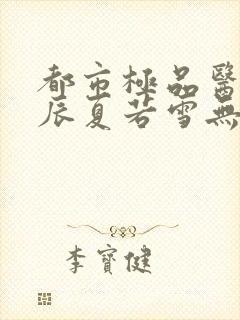 都市極品醫
辰夏若雪無
李寶健